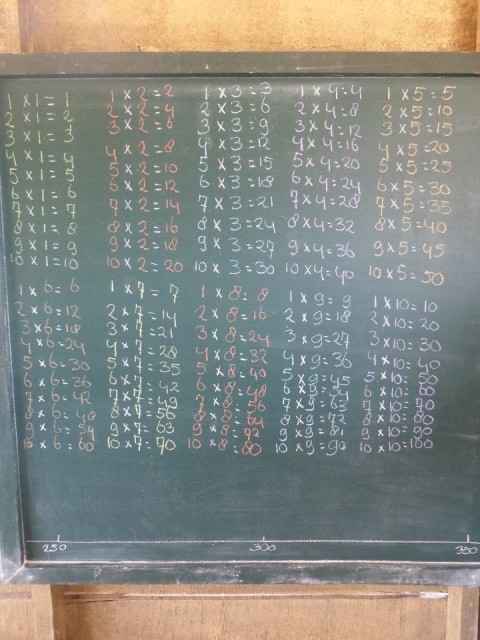 1 x 1 = 1
2 x 1 = 2
3 x 1 = 3
4 x 1 = 4
5 x 1 = 5
6 x 1 = 6
7 x 1 = 7
8 x 1 = 8
9 x 1 = 9
10 x 1 = 10
1 x 2 = 2
2 x 2 = 4
3 x 2 = 6
4 x 2 = 8
5 x 2 = 10
6 x 2 = 12
7 x 2 = 14
8 x 2 = 16
9 x 2 = 18
10 x 2 = 20
1 x 3 = 3
2 x 3 = 6
3 x 3 = 9
4 x 3 = 12
5 x 3 = 15
6 x 3 = 18
7 x 3 = 21
8 x 3 = 24
9 x 3 = 27
10 x 3 = 30
1 x 4 = 4
2 x 4 = 8
3 x 4 = 12
4 x 4 = 16
5 x 4 = 20
6 x 4 = 24
7 x 4 = 28
8 x 4 = 32
9 x 4 = 36
10 x 4 = 40
1 x 5 = 5
2 x 5 = 10
3 x 5 = 15
4 x 5 = 20
5 x 5 = 25
6 x 5 = 30
7 x 5 = 35
8 x 5 = 40
9 x 5 = 45
10 x 5 = 50
1 x 6 = 6
2 x 6 = 12
3 x 6 = 18
4 x 6 = 24
5 x 6 = 30
6 x 6 = 36
7 x 6 = 42
8 x 6 = 48
9 x 6 = 54
10 x 6 = 60
1 x 7 = 7
2 x 7 = 14
3 x 7 = 21
4 x 7 = 28
5 x 7 = 35
6 x 7 = 42
7 x 7 = 49
8 x 7 = 56
9 x 7 = 63
10 x 7 = 70
1 x 8 = 8
2 x 8 = 16
3 x 8 = 24
4 x 8 = 32
5 x 8 = 40
6 x 8 = 48
7 x 8 = 56
8 x 8 = 64
9 x 8 = 72
10 x 8 = 80
1 x 9 = 9
2 x 9 = 18
3 x 9 = 27
4 x 9 = 36
5 x 9 = 45
6 x 9 = 54
7 x 9 = 63
8 x 9 = 72
9 x 9 = 81
10 x 9 = 90
1 x 10 = 10
2 x 10 = 20
3 x 10 = 30
4 x 10 = 40
5 x 10 = 50
6 x 10 = 60
7 x 10 = 70
8 x 10 = 80
9 x 10 = 90
10 x 10 = 100
250 300 350